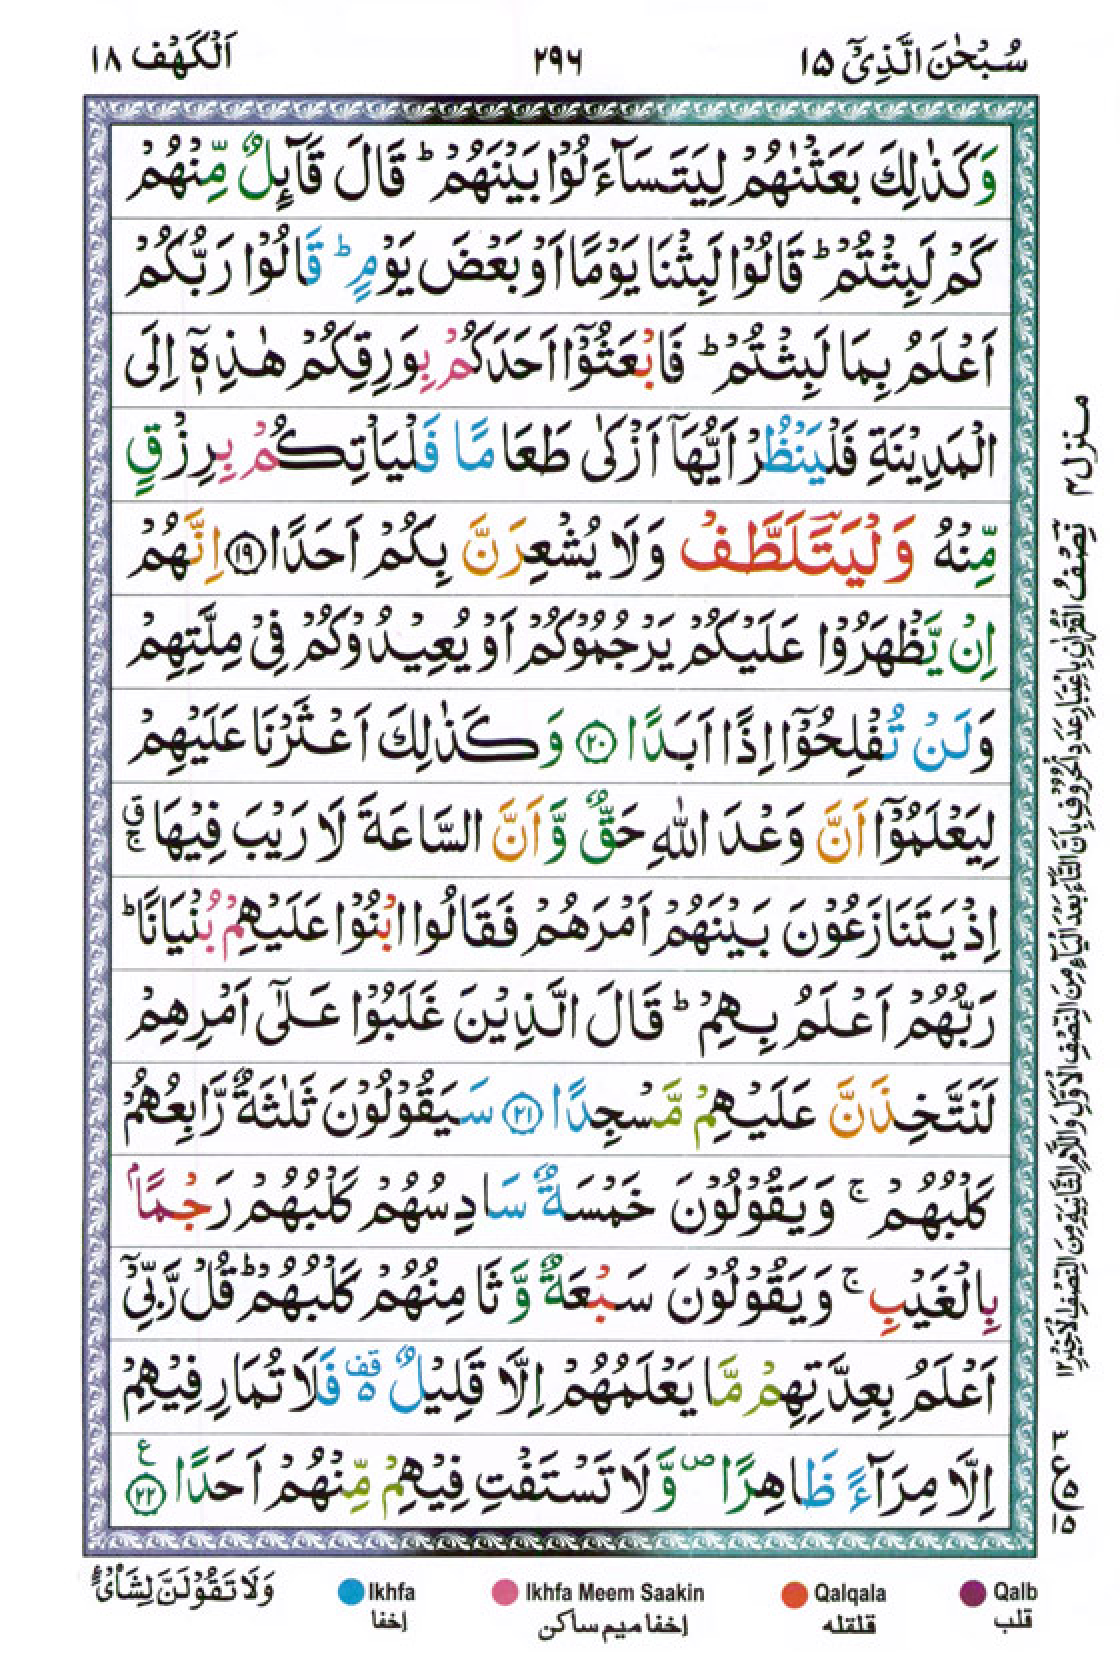 سُبْحٰنَ الَّذِیْۤ ۱۵
۲۹۶
اَلْكَهْف ۱۸
وَكَذٰلِكَ بَعَثْنٰهُمْ لِیَتَسَآءَلُوْا بَیْنَهُمْ ؕ قَالَ قَآىِٕلٌ مِّنْهُمْ
كَمْ لَبِثْتُمْ ؕ قَالُوْا لَبِثْنَا یَوْمًا اَوْ بَعْضَ یَوْمٍ ؕ قَالُوْا رَبُّكُمْ
اَعْلَمُ بِمَا لَبِثْتُمْ ؕ فَابْعَثُوْۤا اَحَدَكُمْ بِوَرِقِكُمْ هٰذِهٖۤ اِلَی
الْمَدِیْنَةِ فَلْیَنْظُرْ اَیُّهَاۤ اَزْكٰی طَعَامًا فَلْیَاْتِكُمْ بِرِزْقٍ
مِّنْهُ وَلْیَتَلَطَّفْ وَلَا یُشْعِرَنَّ بِكُمْ اَحَدًا ۱۹ اِنَّهُمْ
اِنْ یَّظْهَرُوْا عَلَیْكُمْ یَرْجُمُوْكُمْ اَوْ یُعِیْدُوْكُمْ فِیْ مِلَّتِهِمْ
وَلَنْ تُفْلِحُوْۤا اِذًا اَبَدًا ۲۰ وَكَذٰلِكَ اَعْثَرْنَا عَلَیْهِمْ
لِیَعْلَمُوْۤا اَنَّ وَعْدَ اللّٰهِ حَقٌّ وَّاَنَّ السَّاعَةَ لَا رَیْبَ فِیْهَا ۚۗ
اِذْ یَتَنَازَعُوْنَ بَیْنَهُمْ اَمْرَهُمْ فَقَالُوا ابْنُوْا عَلَیْهِمْ بُنْیَانًا ؕ
رَبُّهُمْ اَعْلَمُ بِهِمْ ؕ قَالَ الَّذِیْنَ غَلَبُوْا عَلٰۤی اَمْرِهِمْ
لَنَتَّخِذَنَّ عَلَیْهِمْ مَّسْجِدًا ۲۱ سَیَقُوْلُوْنَ ثَلٰثَةٌ رَّابِعُهُمْ
كَلْبُهُمْ ۚ وَیَقُوْلُوْنَ خَمْسَةٌ سَادِسُهُمْ كَلْبُهُمْ رَجْمًۢا
بِالْغَیْبِ ۚ وَیَقُوْلُوْنَ سَبْعَةٌ وَّثَامِنُهُمْ كَلْبُهُمْ ؕ قُلْ رَّبِّیْۤ
اَعْلَمُ بِعِدَّتِهِمْ مَّا یَعْلَمُهُمْ اِلَّا قَلِیْلٌ ۵ قف فَلَا تُمَارِ فِیْهِمْ
اِلَّا مِرَآءً ظَاهِرًا ۪ وَّلَا تَسْتَفْتِ فِیْهِمْ مِّنْهُمْ اَحَدًا ۲۲ ع
منزل ۴
نِصْفُ الْقُرْاٰنِ بِاعْتِبَارِ عَدَدِ الْحُرُوْفِ بِاَنَّ التَّاءَ بَعْدَ الْیَاءِ مِنَ النِّصْفِ الْاَوَّلِ وَاللَّامَ الثَّانِیَةَ مِنَ النِّصْفِ الْاَخِیْرِ ۱۲
۳ ع ۵ ۱۵
وَلَا تَقُوْلَنَّ لِشَایْءٍ
Ikhfa
إخفا
Ikhfa Meem Saakin
إخفا میم ساکن
Qalqala
قلقله
Qalb
قلب